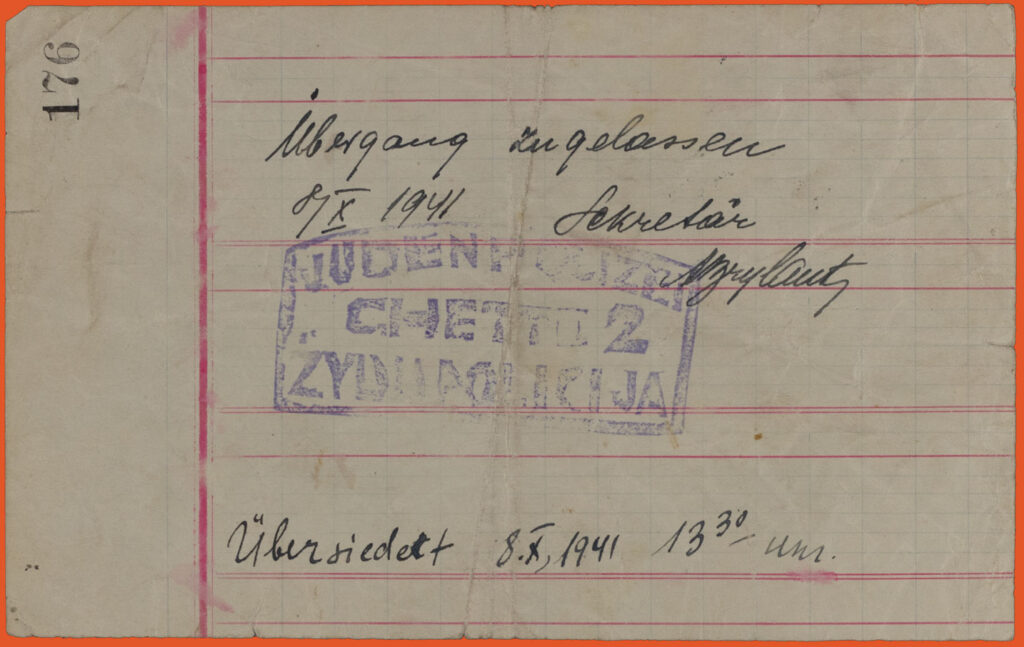 176
Übergang zugelassen
8/X 1941 Sekretär
JUDENPOLIZEI
GHETTO 2
ŻYDU POLICIJA
Übersiedelt 8.X,1941 13³⁰ Uhr.